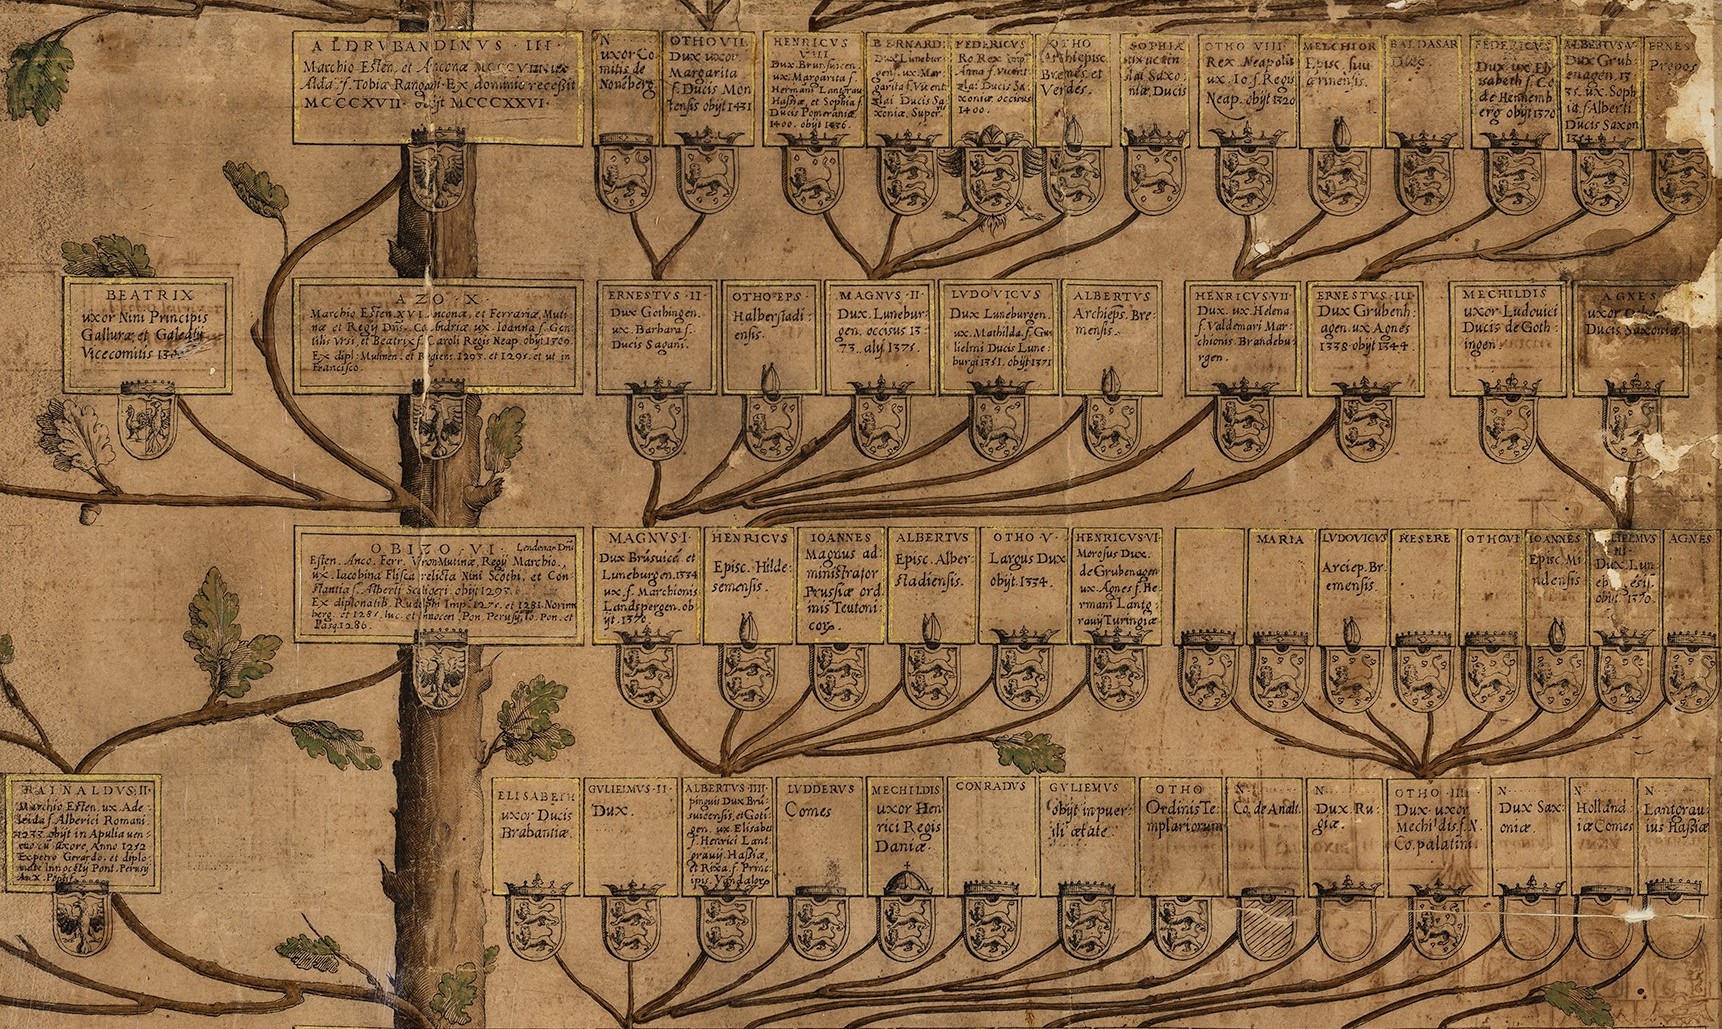 ALDRVBANDINVS · III ·
Marchio Esten. et Anconæ
Alda f. Tobiæ Rangoni. Ex dominio recessit
MCCCXVII · obijt MCCCXXVI ·
N
uxor Co
mitis de
OTHO VII
Dux uxor
Margarita
f. Ducis Mon
tensis obijt 1431
HENRICVS
VIII
Dux Brunsuicen.
ux. Margarita f.
Hermani Lantgrau
Hassiæ, et Sophia f.
Ducis Pomeraniæ
1400. obijt 1436.
BERNARD:
Dux Lunebur
gen. ux. Mar
garita f. Vicent
zlai Ducis Sa
xoniæ, Super.
FEDERICVS
Ro. Rex Imp.
Anna f. Vicent
zlai Ducis Sa
xoniæ. occisus
1400.
OTHO
Archiepisc.
Bremēs. et
Verdēs.
SOPHIA
lai Saxo
niæ, Ducis
OTHO VIII
Rex Neapolis
ux. Io. f. Regis
Neap. obijt 1320
MELCHIOR
Episc. Suu
arinensis.
BALDASAR
Dux
FEDERICVS
Dux. ux. Eli
sabeth f. Co
de Hennemb
erg obijt 1370
ALBERTVS V
Dux Grub
enagen. 13
35. ux. Soph
ia f. Alberti
Ducis Saxon
ERNES
Prepos
BEATRIX
uxor Nini Principis
Galluræ, et Galeatij
Vicecomitis
AZO · X ·
Marchio Esten. XVI Anconæ, et Ferrariæ, Muti
næ et Regij Dñs. Co. Andriæ ux. Ioanna f. Gen
tilis Vrsi, et Beatrix f. Caroli Regis Neap. obijt 1309.
Ex dipl: Mutinen. et Regiens. 1293. et 1295. et ut in
Francisco.
ERNESTVS · II ·
Dux Gotingen.
ux. Barbara f.
Ducis Sagani.
OTHO EPS ·
Halberstadi ·
ensis.
MAGNVS · II ·
Dux. Lunebur ·
gen. occisus 13
73. alij 1375.
LVDOVICVS
Dux Luneburgen.
ux. Mathilda f. Gu
lielmi Ducis Lune ·
burgi 1351. obijt 1371
ALBERTVS
Archieps. Bre ·
mensis.
HENRICVS · VII ·
Dux. ux. Helena
f. Valdemari Mar ·
chionis Brandebu
rgen.
ERNESTVS · III ·
Dux Grubenh ·
agen. ux Agnes
1338 obijt 1344
MECHILDIS
uxor Ludouici
Ducis de Goth ·
ingen.
AGNES
uxor
Ducis Saxoniæ.
OBIZO · VI · Lendenar. Dñs
Esten. Anco. Ferr. Veron. Mutinæ, Regij Marchio.
ux. Iacobina Flisca relicta Nini Scothi, et Con
stantia f. Alberti Scaligeri. obijt 1293.
Ex diplomatib. Rudolphi Imp. 1275. et 1281. Norim
berg. et 1285. luc. et Innocen. Pon. Perusij, Io. Pon. et
Pasq. 1286.
MAGNVS · I ·
Dux Brūsuicē. et
Luneburgen. 1334
ux. f. Marchionis
Landspergen. ob
ijt. 1370.
HENRICVS
Episc. Hilde ·
semensis.
IOANNES
Magnus ad ·
ministrator
Prussiæ ord
inis Teutoni ·
cor.
ALBERTVS
Episc. Alber ·
stadiensis.
OTHO · V ·
Largus Dux
obijt. 1334.
HENRICVS · VI ·
Morosus Dux.
de Grubenagen
ux. Agnes f. He
rmani Lantg ·
rauij Turingiæ
MARIA
LVDOVICVS
Arciep. Br
emensis.
HESERE
OTHO VI
IOANNES
Episc. Mi
ndensis
Dux. Lun
obijt. 1370.
AGNES
RAINALDVS · II ·
Marchio Esten. ux. Ade ·
leida f. Alberici Romani.
1233. obijt in Apulia uen ·
eno cū uxore, Anno 1252
Ex petro Gerardo. et diplo ·
mate Innocētij Pont. Perusij
ELISABETH
uxor Ducis
Brabantiæ.
GVLIELMVS · II ·
Dux.
ALBERTVS · IIII ·
pinguis Dux Brū ·
suicensis, et Goti ·
gen. ux. Elisabet
f. Henrici Lant
grauij Hassiæ,
et Rixa f. Princ ·
ipis. Vandalor.
LVDDERVS
Comes
MECHILDIS
uxor Hen
rici Regis
Daniæ.
CONRADVS
GVLIEMVS
obijt in puer ·
ili ætate.
OTHO
Ordinis Te ·
mplariorum
N ·
Co. de Analt.
N ·
Dux Ru ·
giæ.
OTHO · III ·
Dux uxor
Mechildis f. N.
Co. palatini.
N ·
Dux Sax ·
oniæ.
N ·
Holland
iæ Comes
N ·
Lantgrau ·
ius Hassiæ